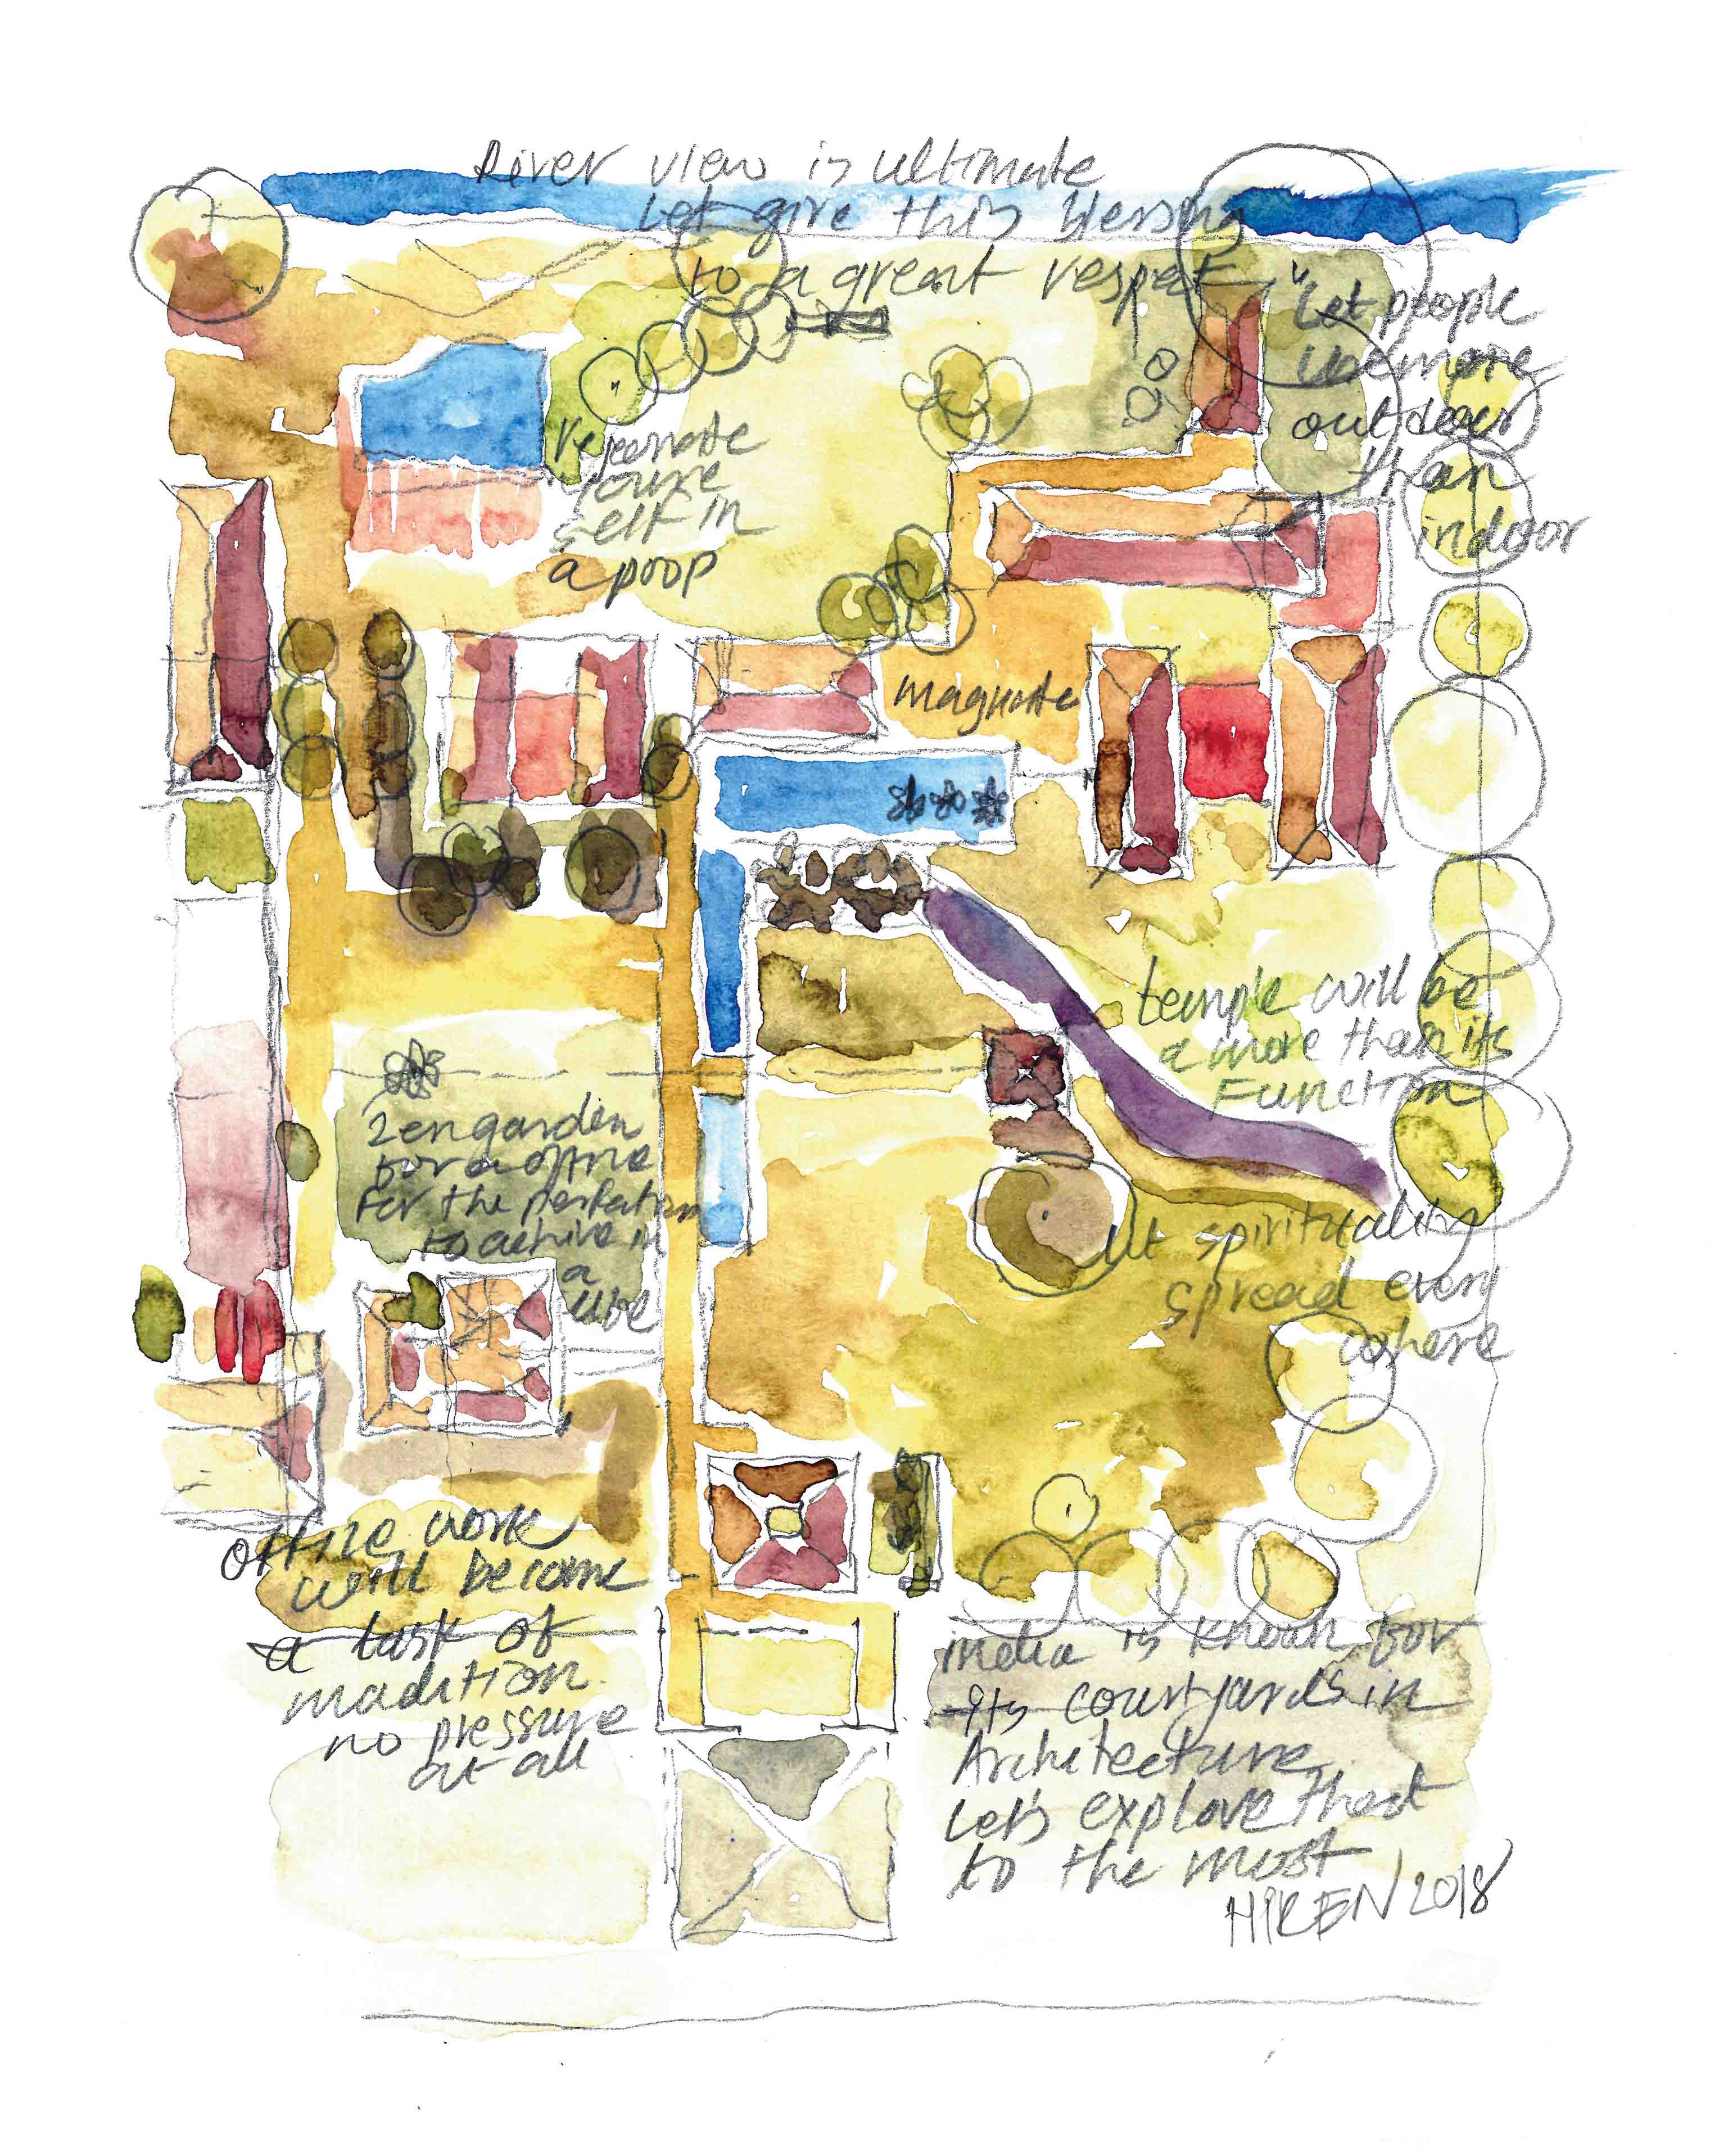 River view is ultimate
Let give this blessing
to a great respet
"Let people
use more
outdoor
than
indoor
rejuenate
youre
self in
a poop
magnate
temple will be
a more than its
Function
Zen garden
for a office
For the perfection
to achive in
a
Let spirituality
spread every
where
office work
will become
a task of
madition
no pressure
at all
india is known for
its courtyards in
Architecture
Let's explore that
to the most
HIREN 2018